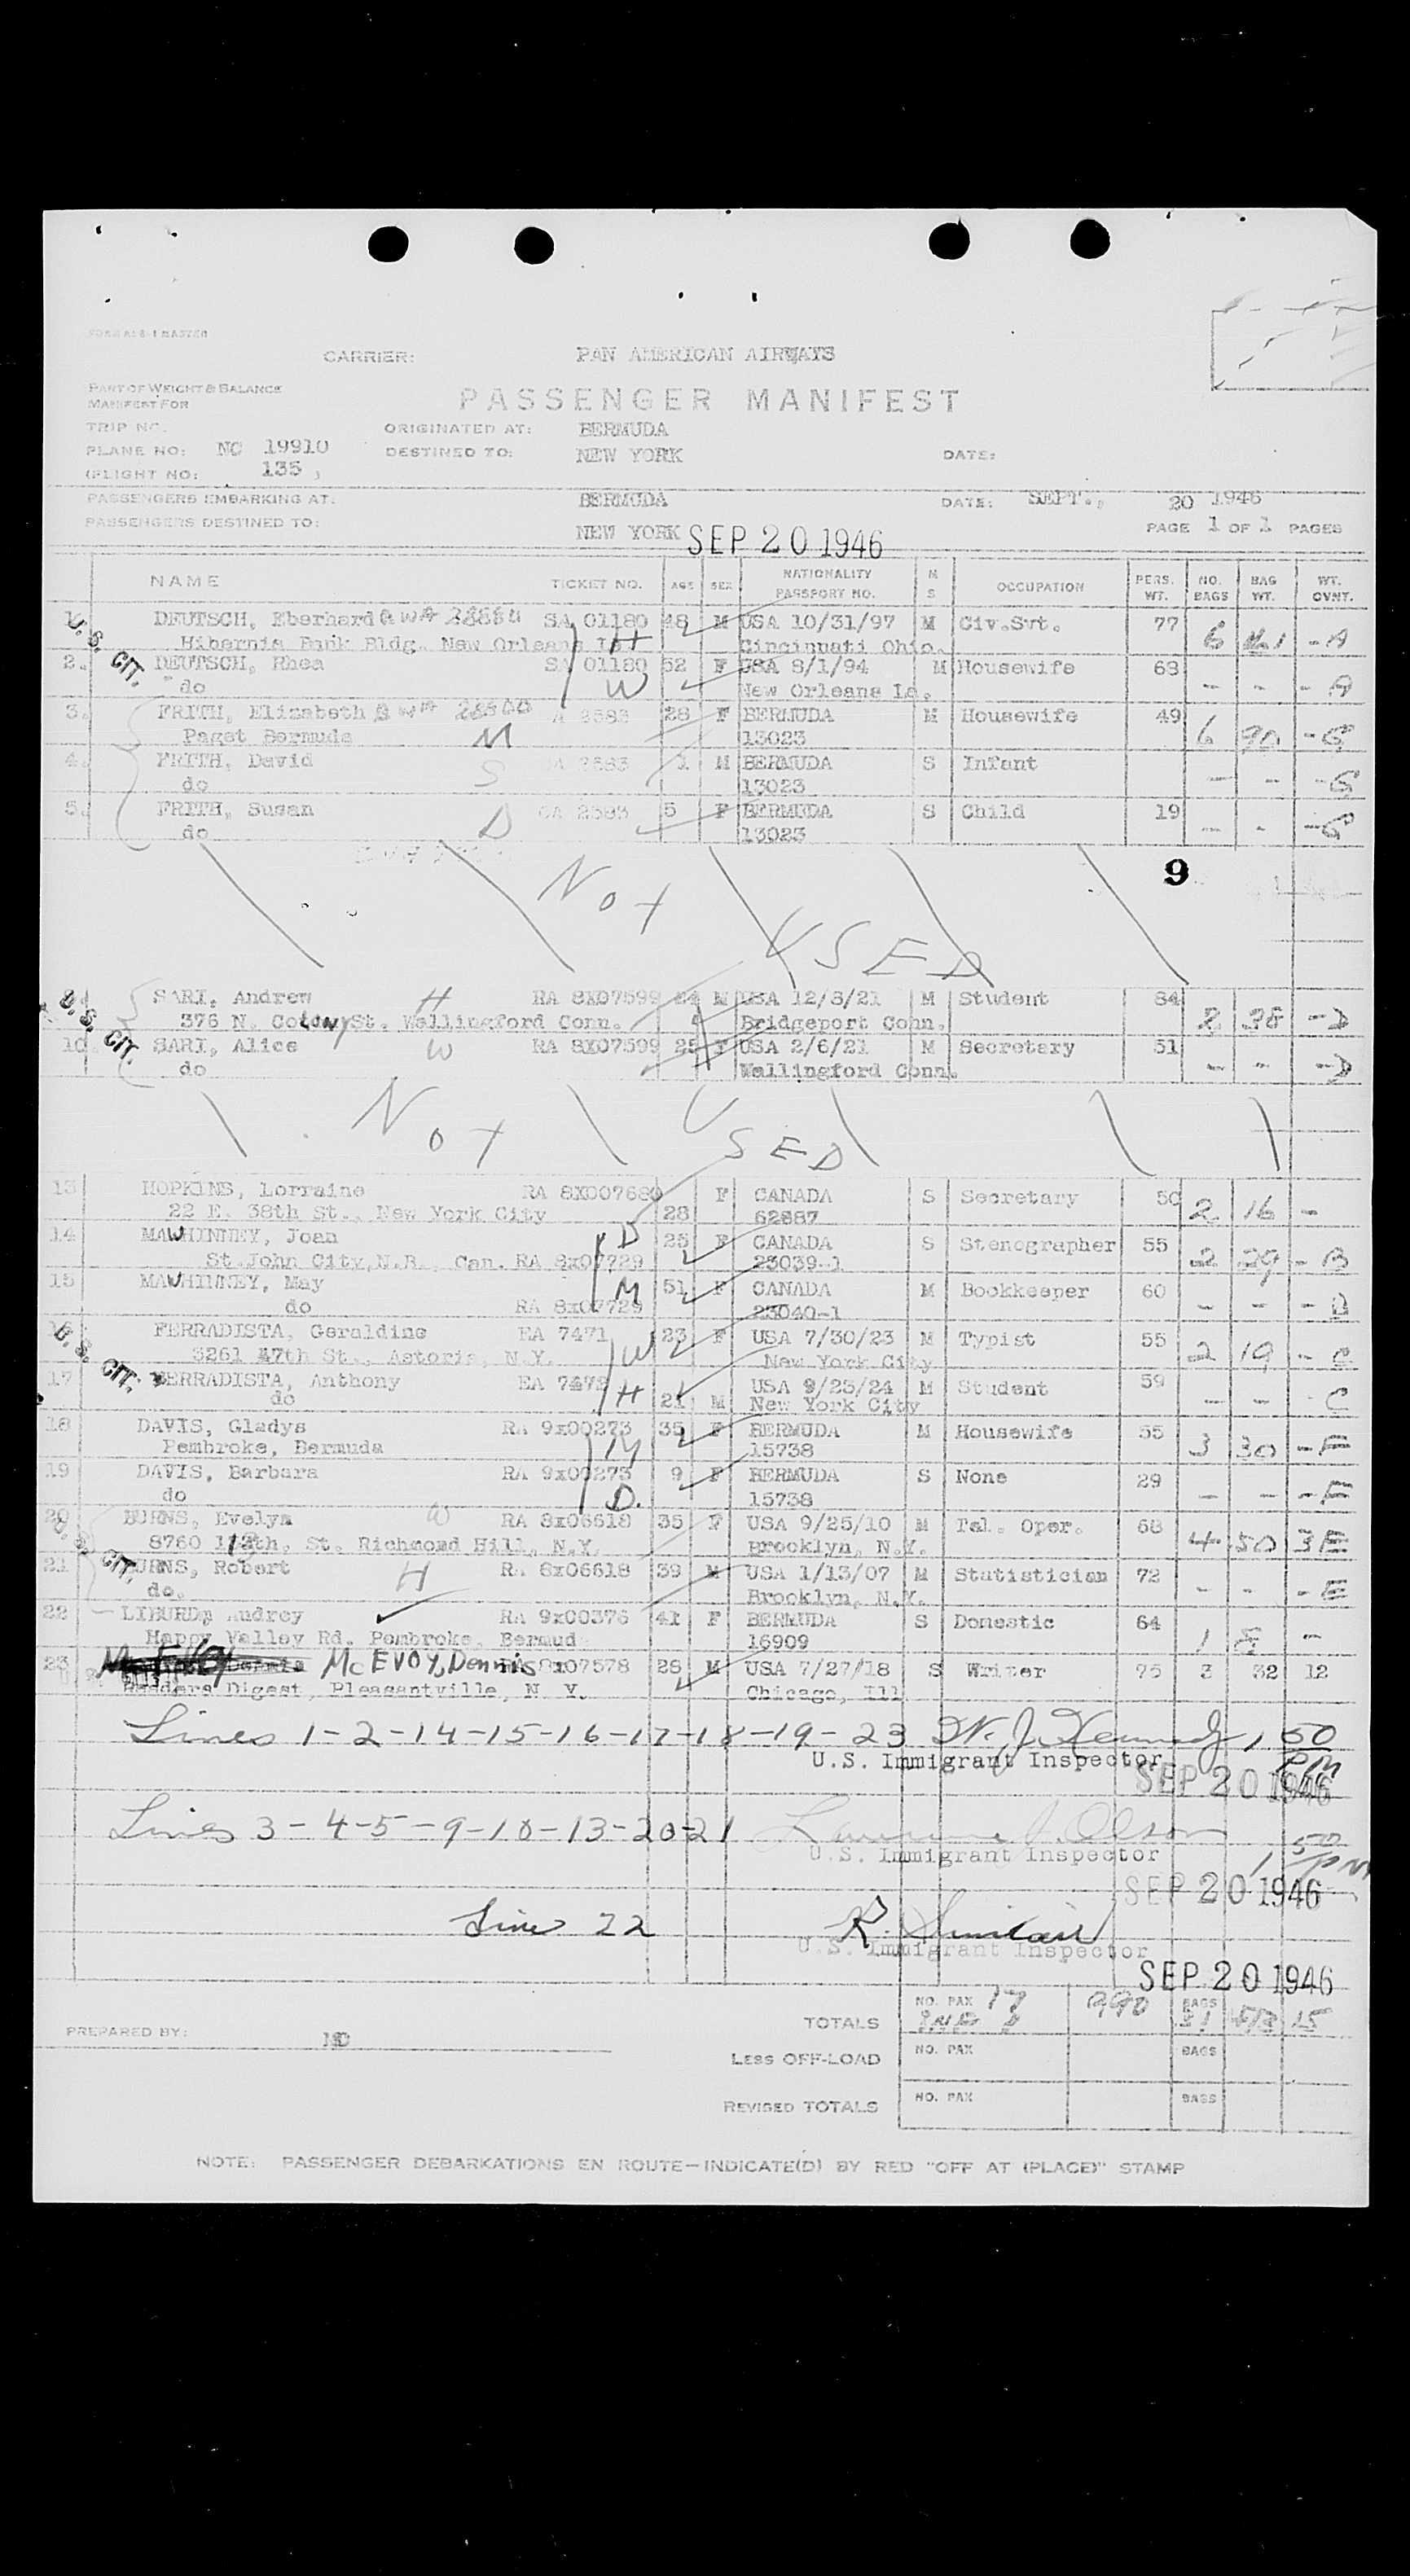 FORM ACS-1 MASTER
CARRIER: PAN AMERICAN AIRWAYS
PART OF WEIGHT & BALANCE
MANIFEST FOR
PASSENGER MANIFEST
TRIP NO. ORIGINATED AT: BERMUDA
PLANE NO: NC 19910 DESTINED TO: NEW YORK DATE:
(FLIGHT NO: 135 )
PASSENGERS EMBARKING AT: BERMUDA DATE: SEPT., 20 1946
PASSENGERS DESTINED TO: NEW YORK SEP 20 1946 PAGE 1 OF 1 PAGES
NAME TICKET NO. AGE SEX NATIONALITY PASSPORT NO. M S OCCUPATION PERS. WT. NO. BAGS BAG WT. WT. OVNT.
1. DEUTSCH, Eberhard SA 01180 48 M USA 10/31/97 M Civ.Svt. 77 6 - A
Hibernia Bank Bldg. New Orleans La. H Cincinnati Ohio.
U. S. CIT.
2. DEUTSCH, Rhea SA 01180 52 F USA 8/1/94 M Housewife 63 - - - A
do W New Orleans La.
3. FRITH, Elizabeth A 2583 28 F BERMUDA M Housewife 49 6 90 - G
Paget Bermuda M 13023
4. FRITH, David A 2583 1 M BERMUDA S Infant - - - G
do S 13023
5. FRITH, Susan CA 2583 5 F BERMUDA S Child 19 - - - G
do D 13023
9
NOT USED
SARI, Andrew H RA 8X07599 24 M USA 12/8/21 M Student 84 2 38 - D
376 N. Colony St. Wallingford Conn. Bridgeport Conn.
U. S. CIT.
10. SARI, Alice W RA 8X07599 25 F USA 2/6/21 M Secretary 51 - - - D
do Wallingford Conn.
NOT USED
13 HOPKINS, Lorraine RA 8X007680 F CANADA S Secretary 50 2 16 -
22 E. 38th St., New York City 28 62887
14 MAWHINNEY, Joan D 25 F CANADA S Stenographer 55 2 29 - B
St.John City,N.B., Can. RA 8x07729 23039-1
15 MAWHINNEY, May M 51 F CANADA M Bookkeeper 60 - - - B
do RA 8x07729 23040-1
16 FERRADISTA, Geraldine EA 7471 23 F USA 7/30/23 M Typist 55 2 19 - C
3261 47th St., Astoria, N.Y. W New York City
U. S. CIT.
17 FERRADISTA, Anthony EA 7472 H 21 M USA 9/25/24 M Student 59 - - C
do New York City
18 DAVIS, Gladys RA 9x00273 35 F BERMUDA M Housewife 55 3 30 - F
Pembroke, Bermuda M 15738
19 DAVIS, Barbara RA 9x00273 9 F BERMUDA S None 29 - - - F
do D. 15738
20 BURNS, Evelyn W RA 8x06618 35 F USA 9/25/10 M Tel. Oper. 68 4 50 3 E
8760 112th, St. Richmond Hill, N.Y. Brooklyn, N.Y.
U. S. CIT.
21 BURNS, Robert H RA 8x06618 39 M USA 1/13/07 M Statistician 72 - - - E
do. Brooklyn, N.Y.
22 LIBURD, Audrey RA 9x00376 41 F BERMUDA S Domestic 64 1 8 -
Happy Valley Rd. Pembroke, Bermud 16909
23 McEVOY, Dennis 8x07578 28 M USA 7/27/18 S Writer 75 3 32 12
Readers Digest, Pleasantville, N. Y. Chicago, Ill
Lines 1-2-14-15-16-17-18-19-23 W. J. Kennedy 1 50 PM
U.S. Immigrant Inspector
SEP 20 1946
Lines 3-4-5-9-10-13-20-21 Olson 1 50 PM
U.S. Immigrant Inspector
SEP 20 1946
Line 22 R. Sinclair
U.S. Immigrant Inspector
SEP 20 1946
TOTALS NO. PAX 17 990 BAGS 31 513 15
PREPARED BY:
LESS OFF-LOAD NO. PAX BAGS
REVISED TOTALS NO. PAX BAGS
NOTE: PASSENGER DEBARKATIONS EN ROUTE—INDICATE(D) BY RED "OFF AT (PLACE)" STAMP